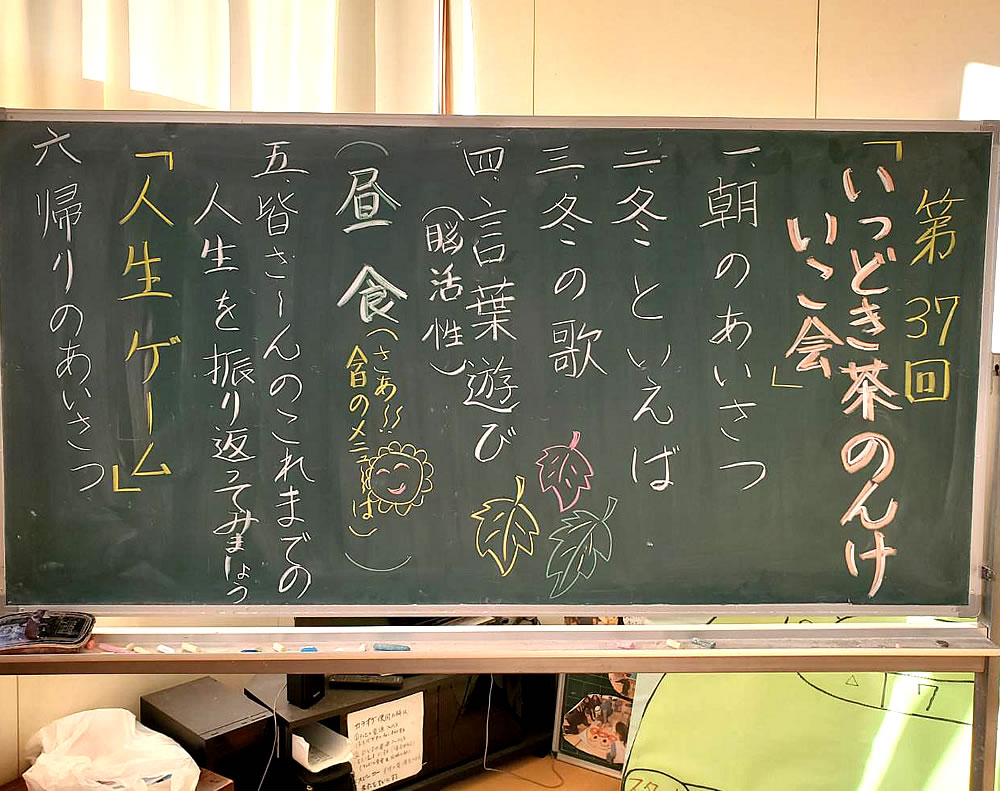 第37回
「いっどき茶のんけ
いこ会」
一、朝のあいさつ
二、冬といえば
三、冬の歌
四、言葉遊び
(脳活性)
(昼食
(さあ〜〜
今日のメニューは)
)
五、皆さ〜んのこれまでの
人生を振り返ってみましょう
「人生ゲーム」
六、帰りのあいさつ
カラオケ使用の時は
7
スタート